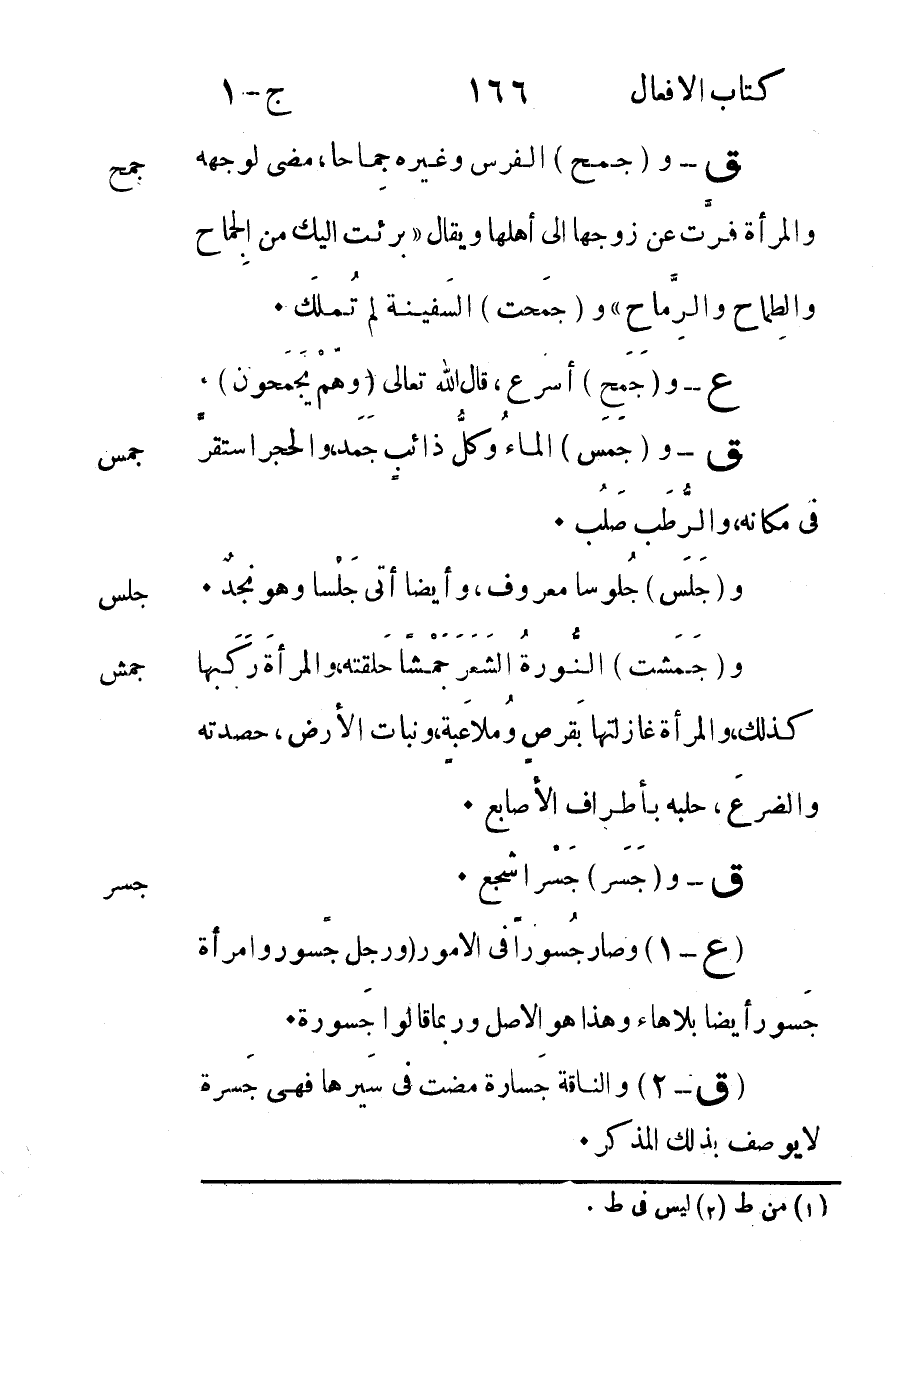 كتاب الافعال ١٦٦ ج-١
ق - و (جمح) الفرس وغيره جِماحا، مضى لوجهه جمح
والمرأة فرَّت عن زوجها الى أهلها ويقال «برئت اليك من الجِماح
والطِماح والرِّماح» و (جمَحت) السَفينة لم تُملَك ٠
ع - و (جَمَح) أسرَع، قال الله تعالى (وهُمْ يَجْمَحون) ٠
ق - و (جَمَس) الماءُ وكلُّ ذائبٍ جَمَد، والحجر استقرَّ جمس
فى مكانه، والرُّطَب صَلُب ٠
و (جَلَس) جُلوسا معروف، وأيضا أتى جَلْسا وهو نجدٌ ٠ جلس
و (جَمَشت) النُّورةُ الشَعَرَ جَمْشًا حَلقته، والمرأةَ رَكَبها جمش
كذلك، والمرأة غازلتها بقَرصٍ ومُلاعَبةٍ، ونبات الأرض، حصدته
والضرعَ، حلبه بأطراف الأصابع ٠
ق - و (جَسَر) جَسْرا شجُع ٠ جسر
(ع - ١) وصار جُسوراً فى الامور (ورجل جَّسور وامرأة
جَسور أيضا بلاهاء وهذا هو الاصل وربما قالوا جَسورة ٠
(ق - ٢) والناقة جَسارة مضت فى سَيرها فهى جَسرة
لايوصف بذلك المذكر ٠
(١) من ط (٢) ليس فى ط .